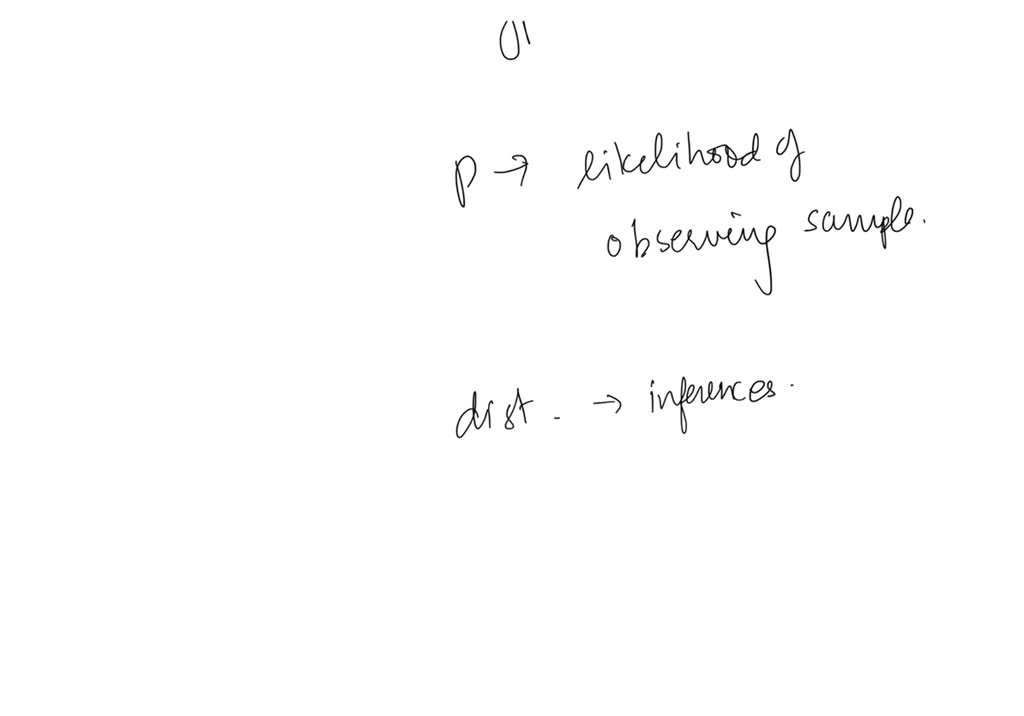 p → likelihood of
observing sample.
dist. → inferences.